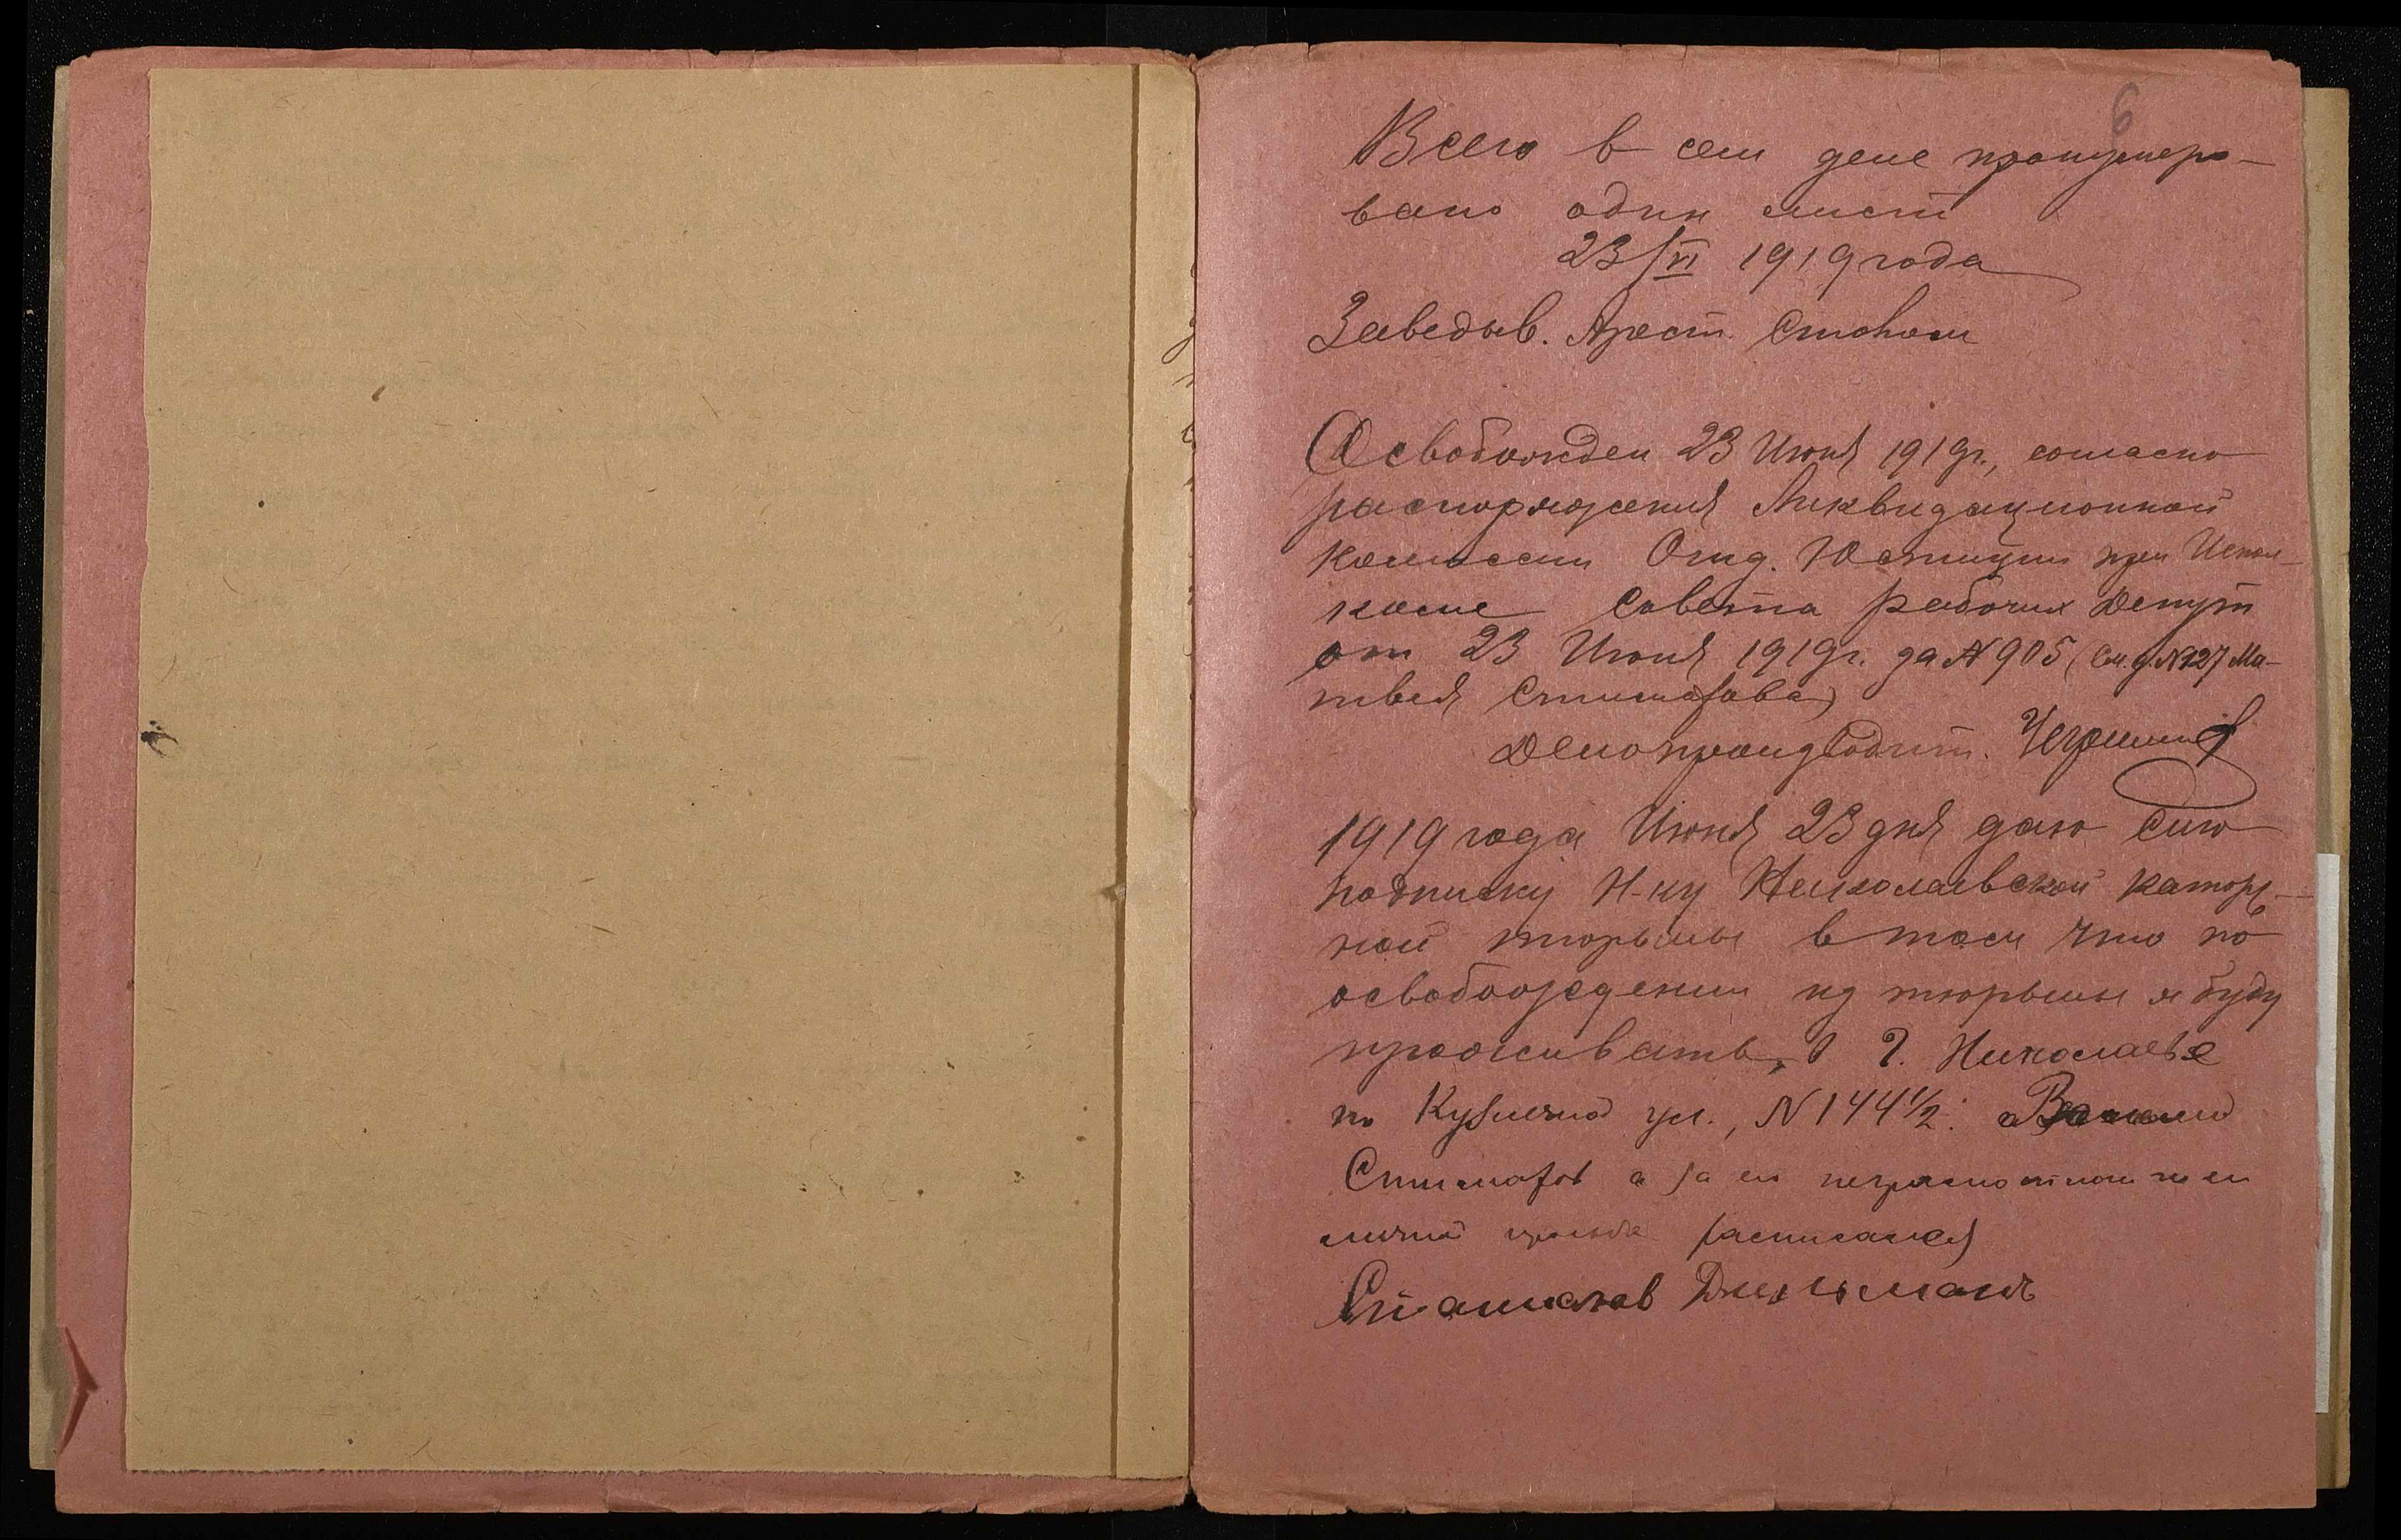 6
Всего в сем деле пронумеро-
вано один лист
23/VI 1919 года
Заведыв. Арест. Столом
Освобожден 23 Июня 1919г., согласно
распоряжения Ликвидационной
Комиссии Отд. Юстиции при Испол-
коме Совета Рабочих Депут
от 23 Июня 1919г. за № 905 (См. д. № 127 Ма-
твея)
Делопроизводит.
1919 года Июня 23 дня даю сию
подписку Н-ку Николаевской Каторж-
ной тюрьмы в том что по
освобождении из тюрьмы я буду
проживать, в г. Николаеве
по Кузнечной ул., № 144 1/2.
а за его неграмотного по его
личной просьбе расписался